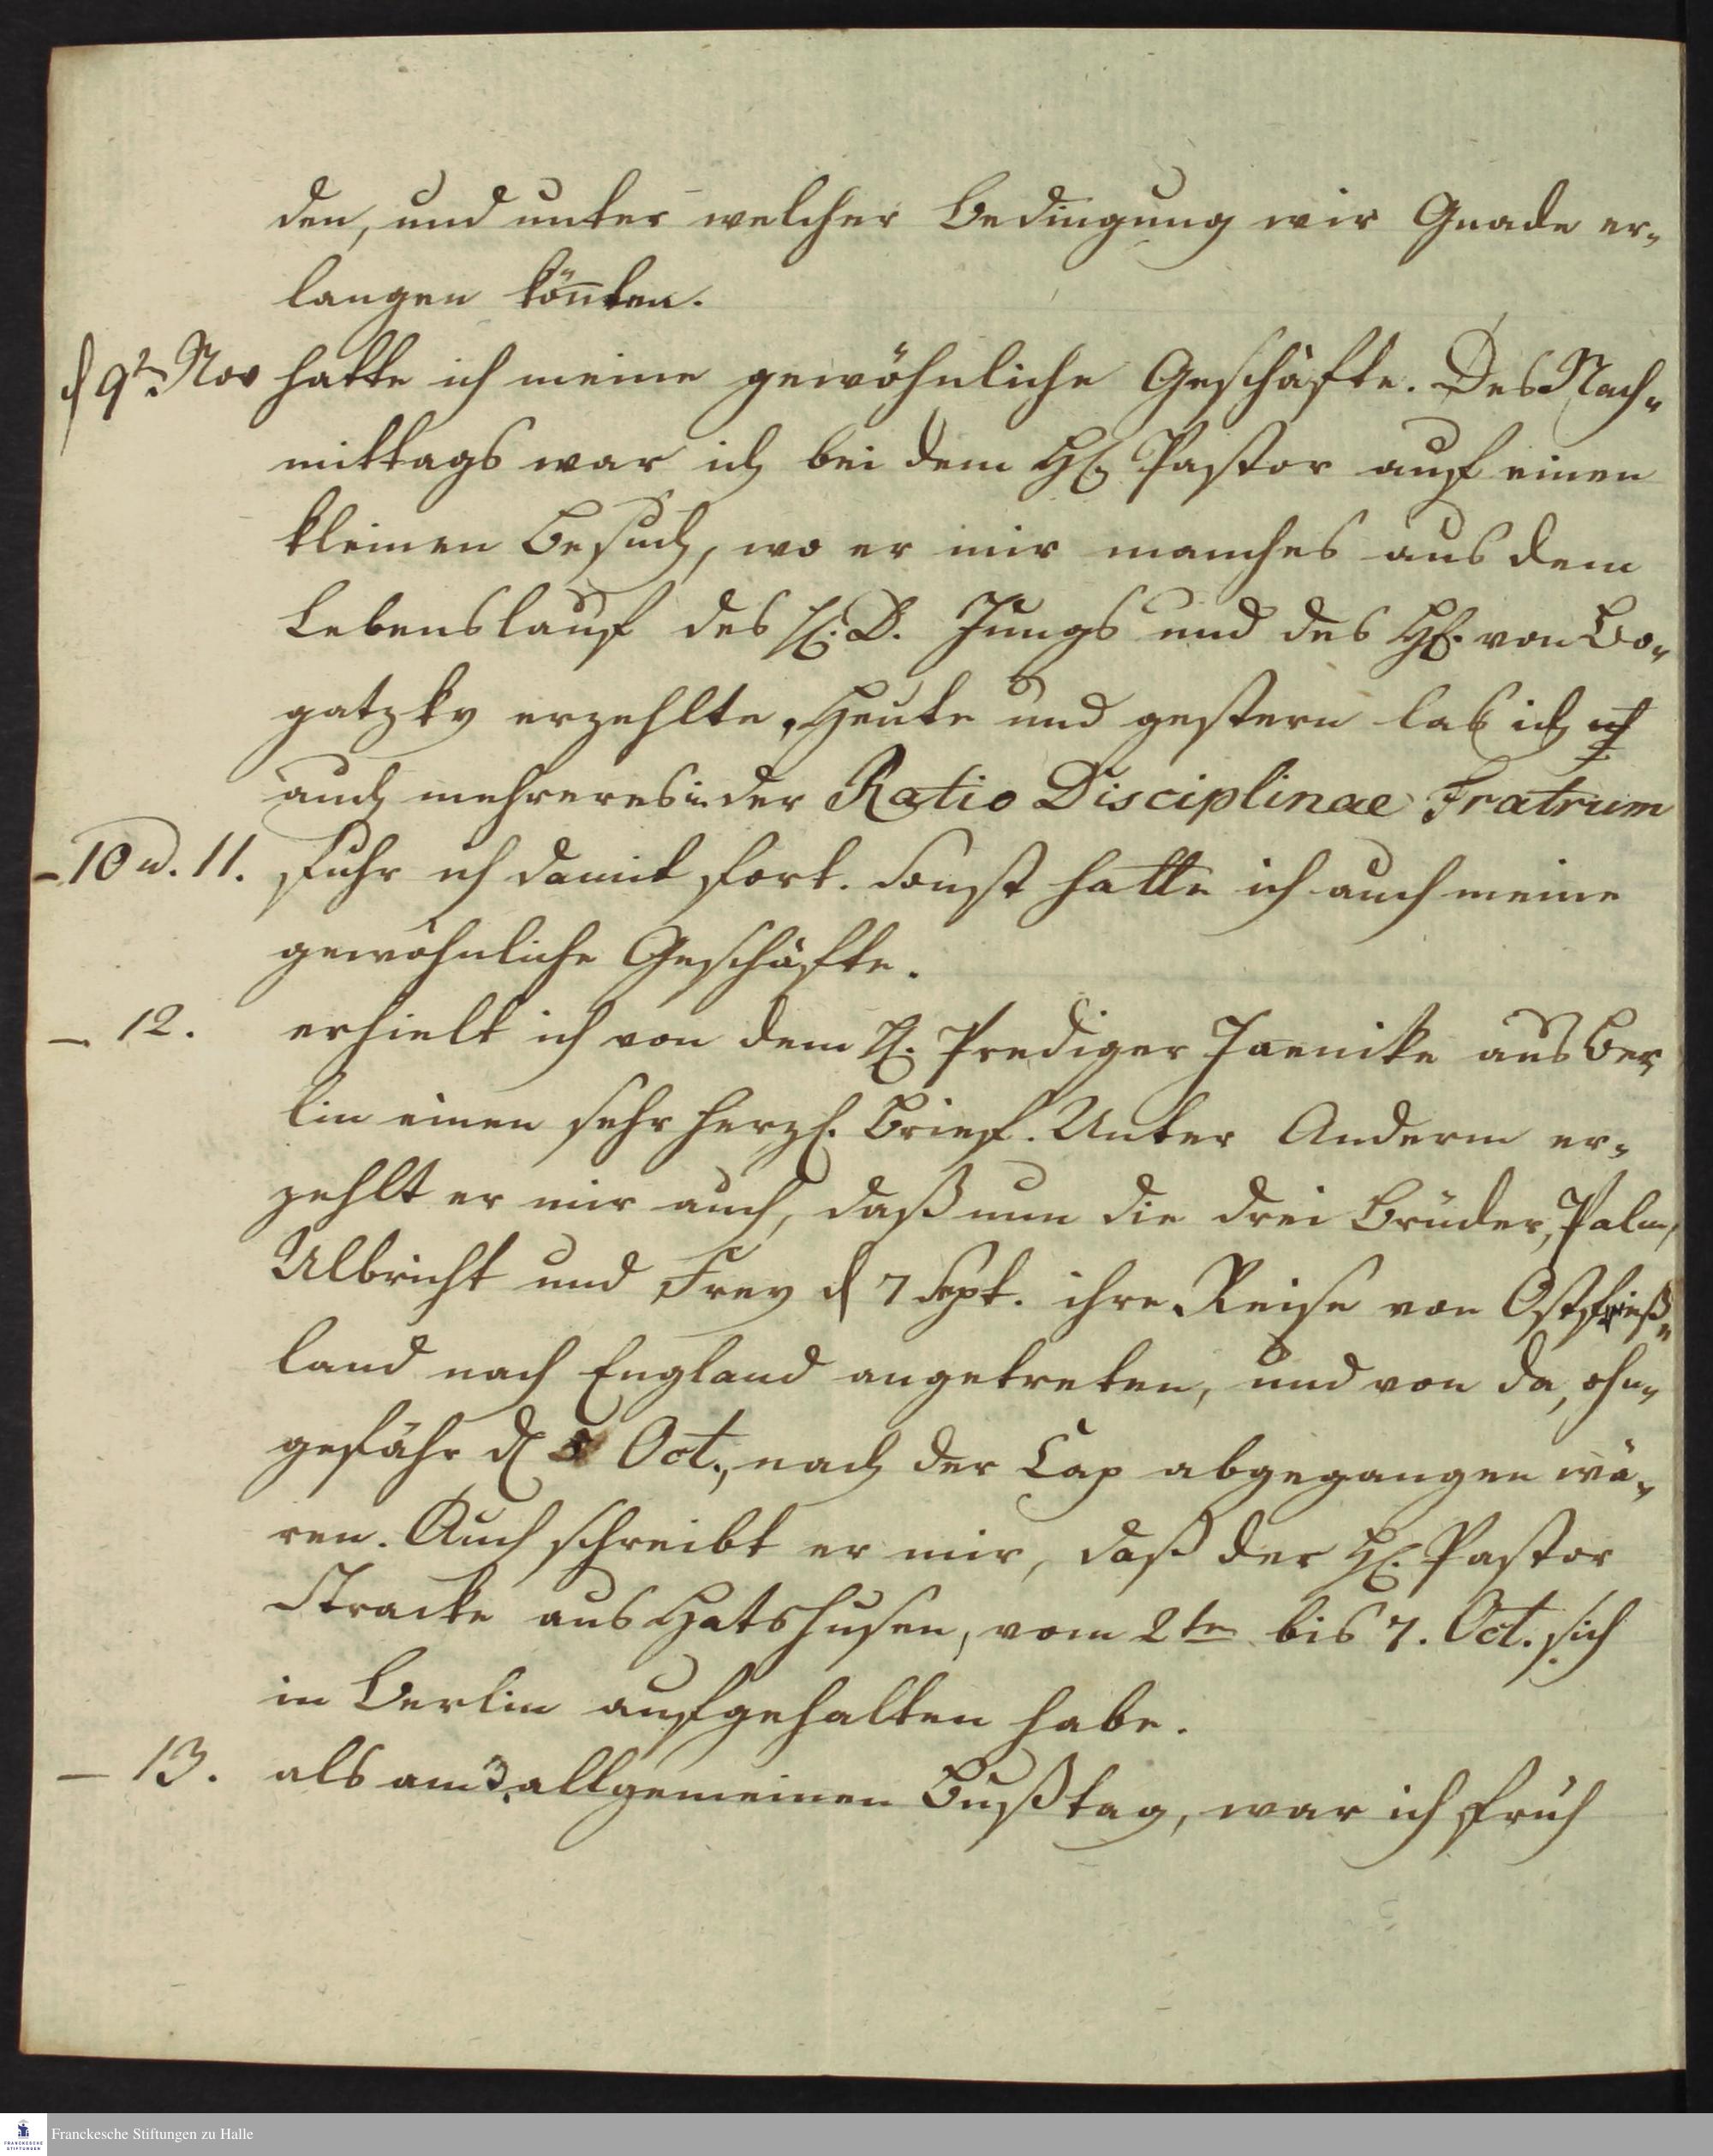 den, und unter welcher Bedingung wir Gnade er-
langen kön̅ten.
d 9t. Nov hatte ich meine gewöhnliche Geschäfte. Des Nach-
mittags war ich bei dem H. Pastor auf einen
kleinen Besuch, wo er mir manches aus dem
Lebenslauf des H. D. Jungs und des H. von Bo-
gatzky erzehlte. Heute und gestern las ich
auch mehreres in der Ratio Disciplinae Fratrum
- 10 u. 11. fuhr ich damit fort. Sonst hatte ich auch meine
gewöhnliche Geschäfte.
- 12. erhielt ich von dem H. Prediger Jaenike aus Ber-
lin einen sehr herzl. Brief. Unter Anderm er-
zehlt er mir auch, daß nun die drei Brüder, Palm,
Ulbricht und Frey d 7 Sept. ihre Reise von Ostfrieß-
land nach England angetreten, und von da, ohn-
gefähr d Oct., nach der Cap abgegangen wä-
ren. Auch schreibt er mir, daß der H. Pastor
Stracke aus Hatshusen, vom 2ten bis 7. Oct. sich
in Berlin aufgehalten habe.
- 13. als am 3. allgemeinen Bußtag, war ich früh
Franckesche Stiftungen zu Halle